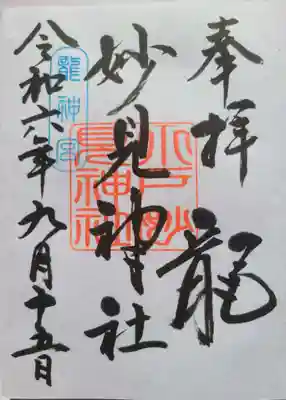 奉拝
龍
妙見神社
令和六年九月十五日
龍神宮
水戸妙見神社